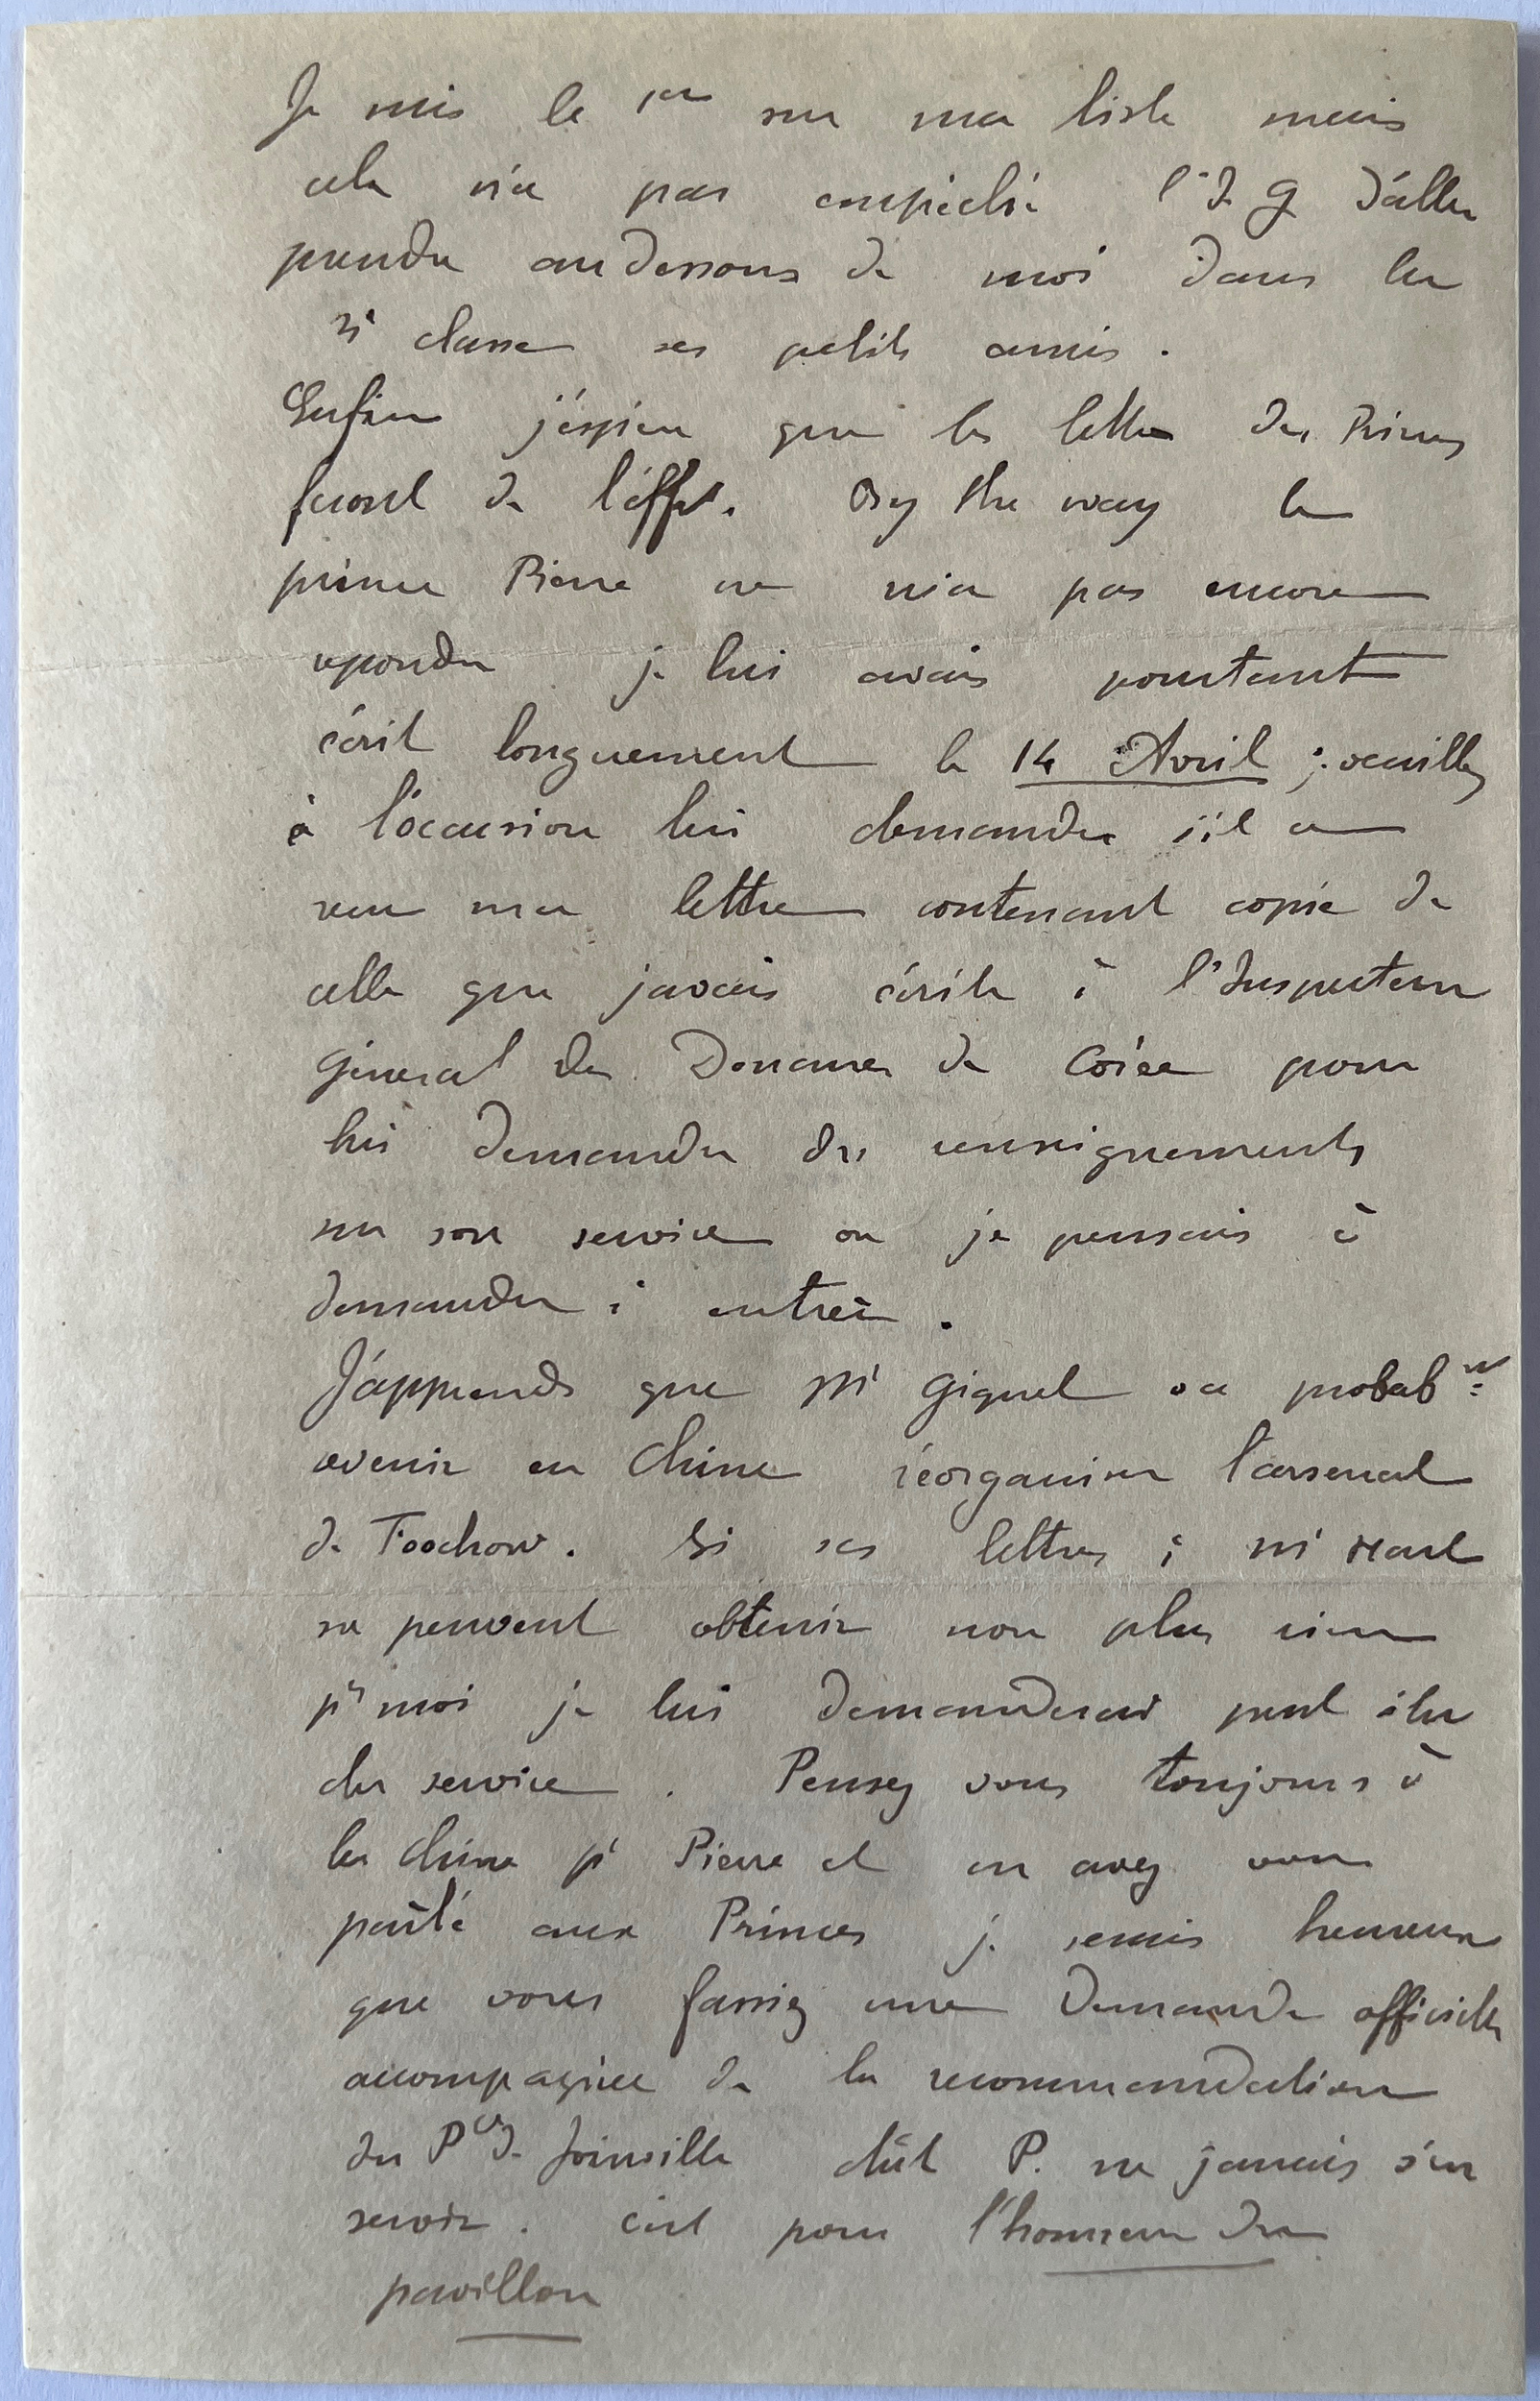 Je suis le 1er sur ma liste mais
cela n'a pas empêché l'I G d'aller
prendre au dessous de moi dans la
3e classe ses petits amis.
Enfin j'éspère que les lettres des Princes
feront de l'éffet. By the way le
prince Pierre ne m'a pas encore
repondu je lui avais pourtant
écrit longuement le 14 Avril ; veuillez
à l'occasion lui demander s'il a
recu ma lettre contenant copie de
celle que javais écrite à l'Inspecteur
Géneral des Douanes de Corée pour
lui demander des renseignements
sur son service ou je pensais à
demander à entrer.
J'apprends que Mr Giquel va probabnt
revenir en Chine réorganiser l'arsenal
de Foochow. Si ses lettres à Mr Hart
ne peuvent obtenir non plus rien
pr moi je lui demanderai peut être
du service. Pensez vous toujours à
la Chine pr Pierre et en avez vous
parlé aux Princes je serais heureux
que vous fassiez une demande officielle
accompagnée de la recommandation
du Pce de Joinville dût P. ne jamais s'en
servir. C'est pour l'honneur du
pavillon